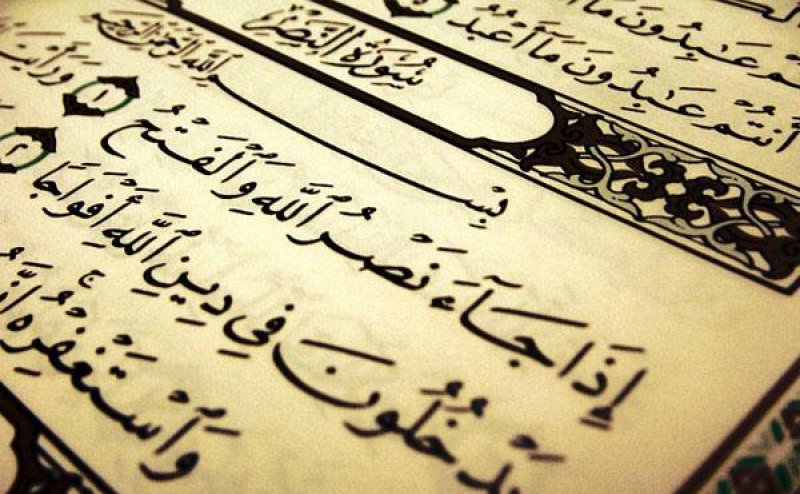 عَـٰبِدُونَ مَآ
أَنتُمْ عَـٰبِدُونَ مَآ أَعْبُدُ ٥
سُورَةُ النَّصْرِ
بِسْمِ ٱللَّهِ ٱلرَّحْمَـٰنِ ٱلرَّحِيمِ
إِذَا جَآءَ نَصْرُ ٱللَّهِ وَٱلْفَتْحُ ١ وَرَأَيْتَ
يَدْخُلُونَ فِى دِينِ ٱللَّهِ أَفْوَاجًا ٢
وَٱسْتَغْفِرْهُ